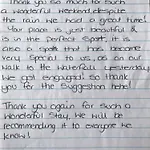 Thank you so much for such
a wonderful weekend, despite
the rain we had a great time!
Your place is just beautiful &
is in the perfect spot. It is
also a spot that has become
very special to us, as on our
walk to the waterfall yesterday
we got engaged! So thank
you for the suggestion here!
Thank you again for such a
wonderful stay, we will be
recommending it to everyone we
know!